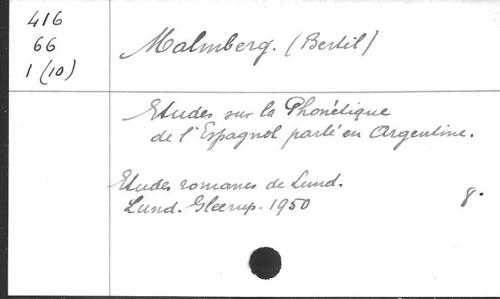 416
66
1 (10)
Malmberg. (Bertil)
Etudes sur la Phonétique
de l'Espagnol parlé en Argentine.
Etudes romanes de Lund.
Lund. Gleerup. 1950
8.